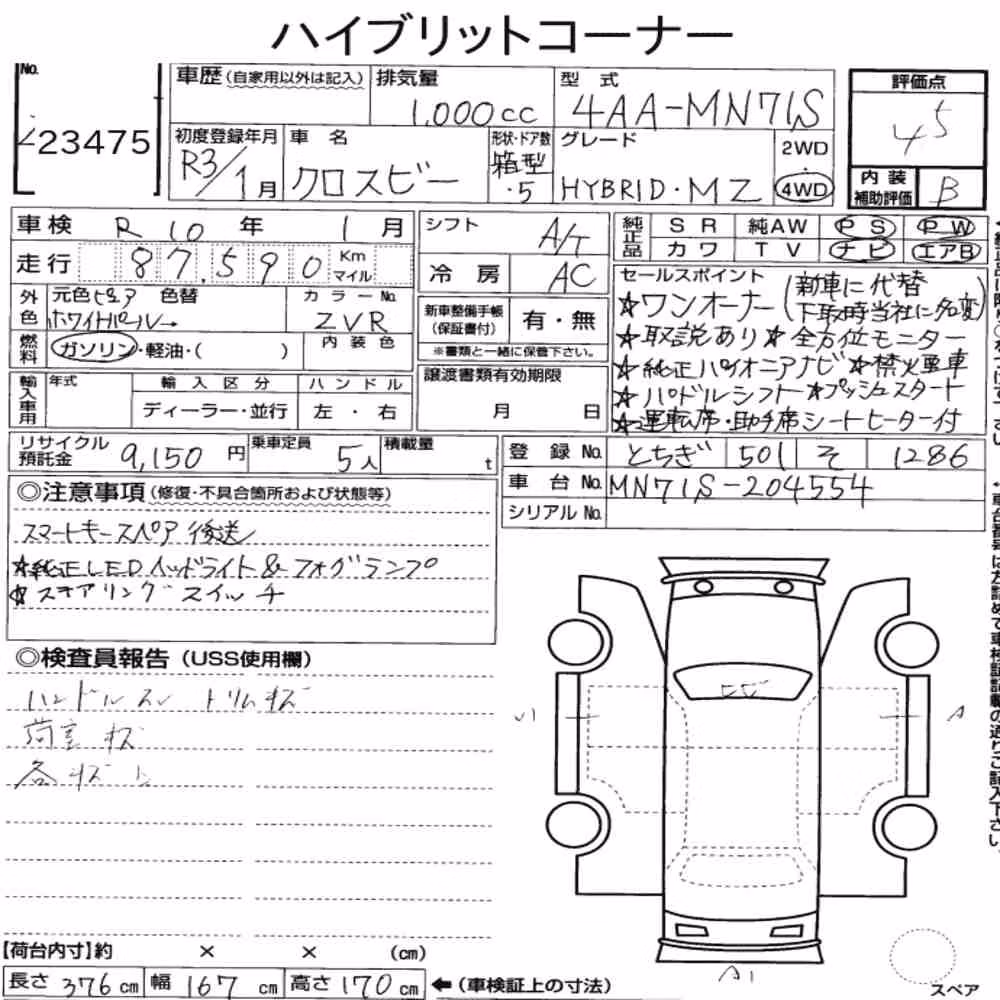 ハイブリットコーナー
No.
23475
車歴(自家用以外は記入)
排気量
1,000cc
型式
4AA-MN71S
評価点
4 5
初度登録年月
R3/1月
車名
クロスビー
形状・ドア数
箱型・5
グレード
HYBRID・MZ
2WD
4WD
内装補助評価
B
車検 R10年 1月
走行 87,590 Km マイル
シフト
A/T
冷房
AC
純正品
SR 純AW PS PW
カワ TV ナビ エアB
外色
元色ピュア 色替
ホワイトパール
カラーNo.
ZVR
燃料
ガソリン・軽油・( )
内装色
新車整備手帳(保証書付)
有・無
※書類と一緒に保管下さい。
セールスポイント
☆ワンオーナー(新車に代替 下取時当社に名変)
☆取説あり☆全方位モニター
☆純正パイオニアナビ☆禁火車
☆パドルシフト☆プッシュスタート
☆運転席・助手席シートヒーター付
輸入車用
年式
輸入区分
ディーラー・並行
ハンドル
左・右
譲渡書類有効期限
月 日
リサイクル預託金
9,150円
乗車定員
5人
積載量
t
登録No.
とちぎ 501 そ 1286
車台No.
MN71S-204554
シリアルNo.
◎注意事項(修復・不具合箇所および状態等)
スマートキースペア後送
☆純正LEDヘッドライト&フォグランプ
☆ステアリングスイッチ
◎検査員報告(USS使用欄)
ハンドルスレ トリムキズ
荷室キズ
各キズ
A
A1
スペア
【荷台内寸】約 × × (cm)
長さ 376 cm 幅 167 cm 高さ 170 cm ←(車検証上の寸法)